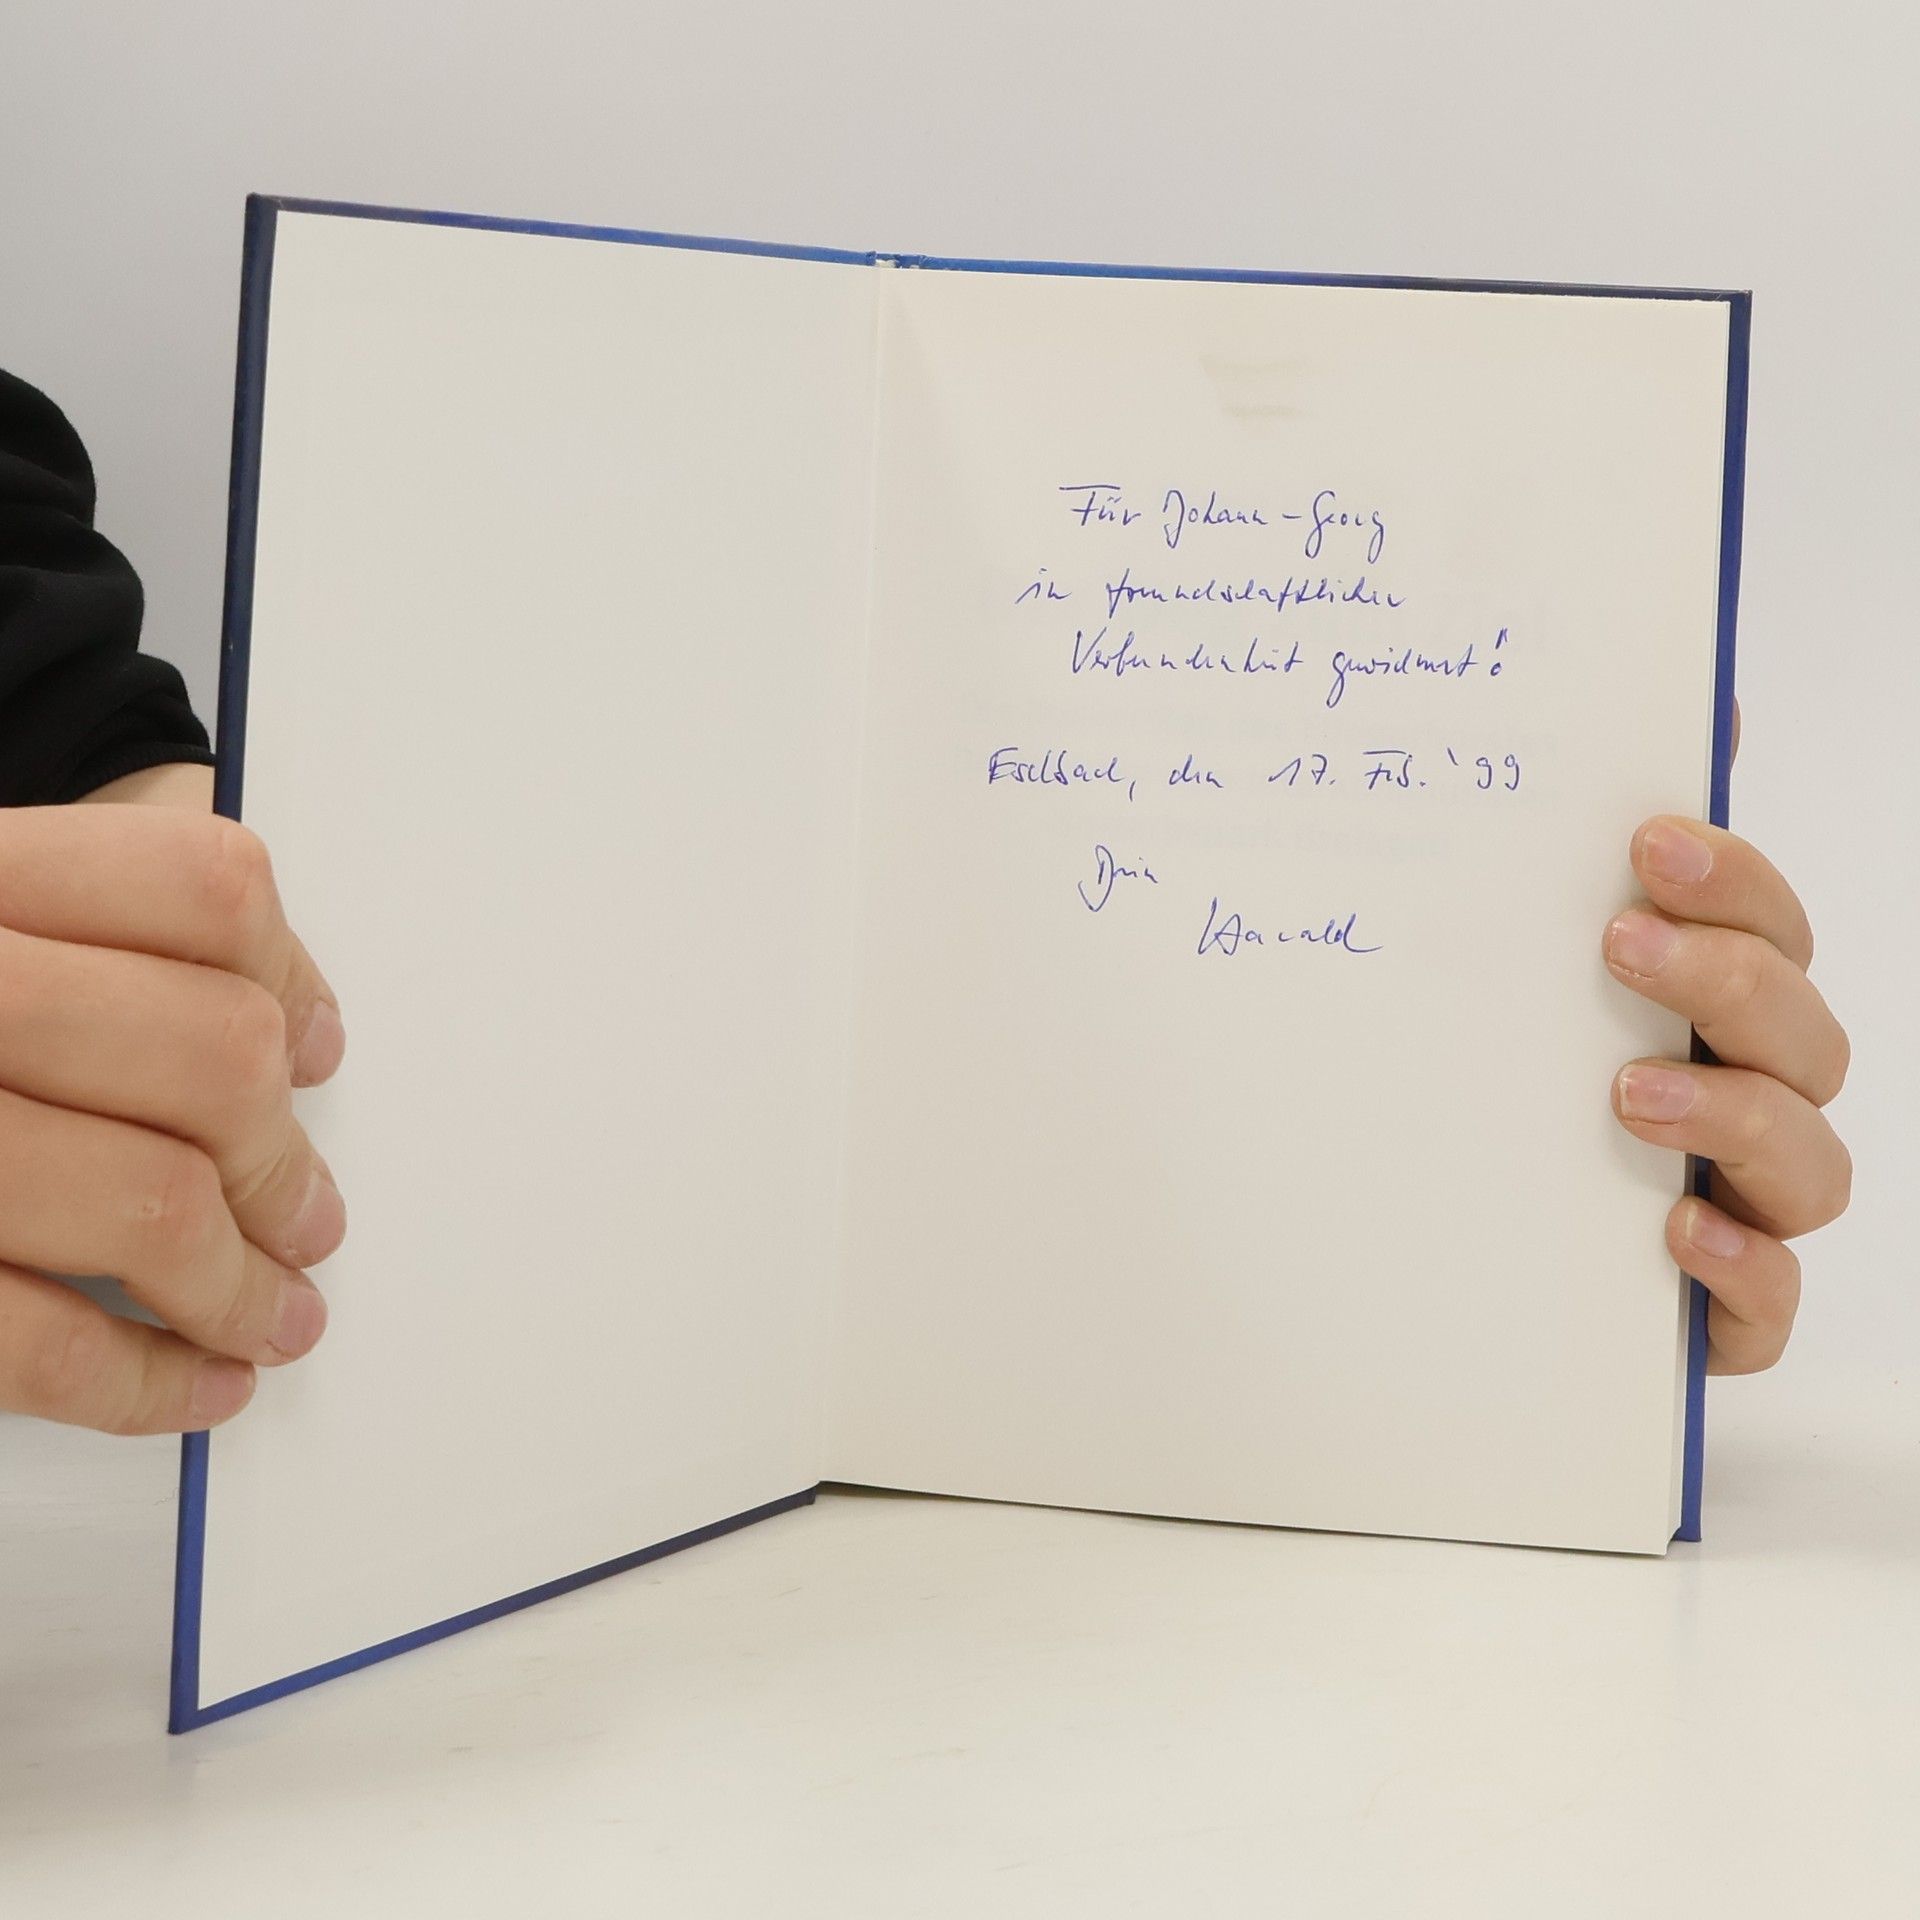 Für Johann-Georg
in freundschaftlicher
Verbundenheit gewidmet!
den 17. Feb. '99
Dein
Harald